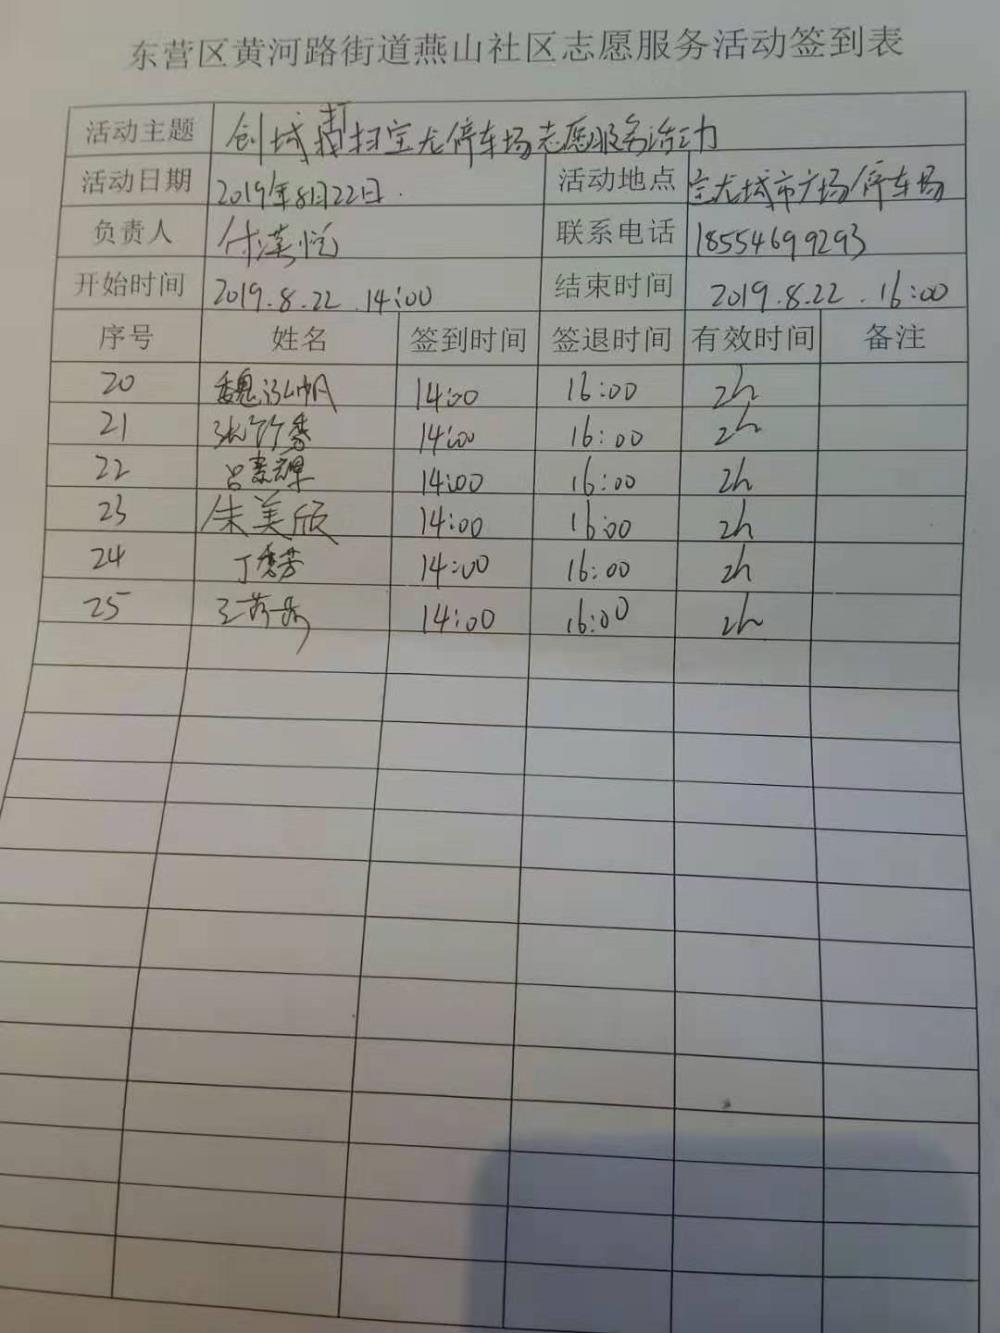 东营区黄河路街道燕山社区志愿服务活动签到表
活动主题 创城清扫宝龙停车场志愿服务活动
活动日期 2019年8月22日. 活动地点 宝龙城市广场停车场
负责人 联系电话 18554699293
开始时间 2019.8.22 14:00 结束时间 2019.8.22 16:00
序号 姓名 签到时间 签退时间 有效时间 备注
20 魏泓帆 14:00 16:00 2h
21 张竹香 14:00 16:00 2h
22 14:00 16:00 2h
23 朱美欣 14:00 16:00 2h
24 丁秀芳 14:00 16:00 2h
25 14:00 16:00 2h